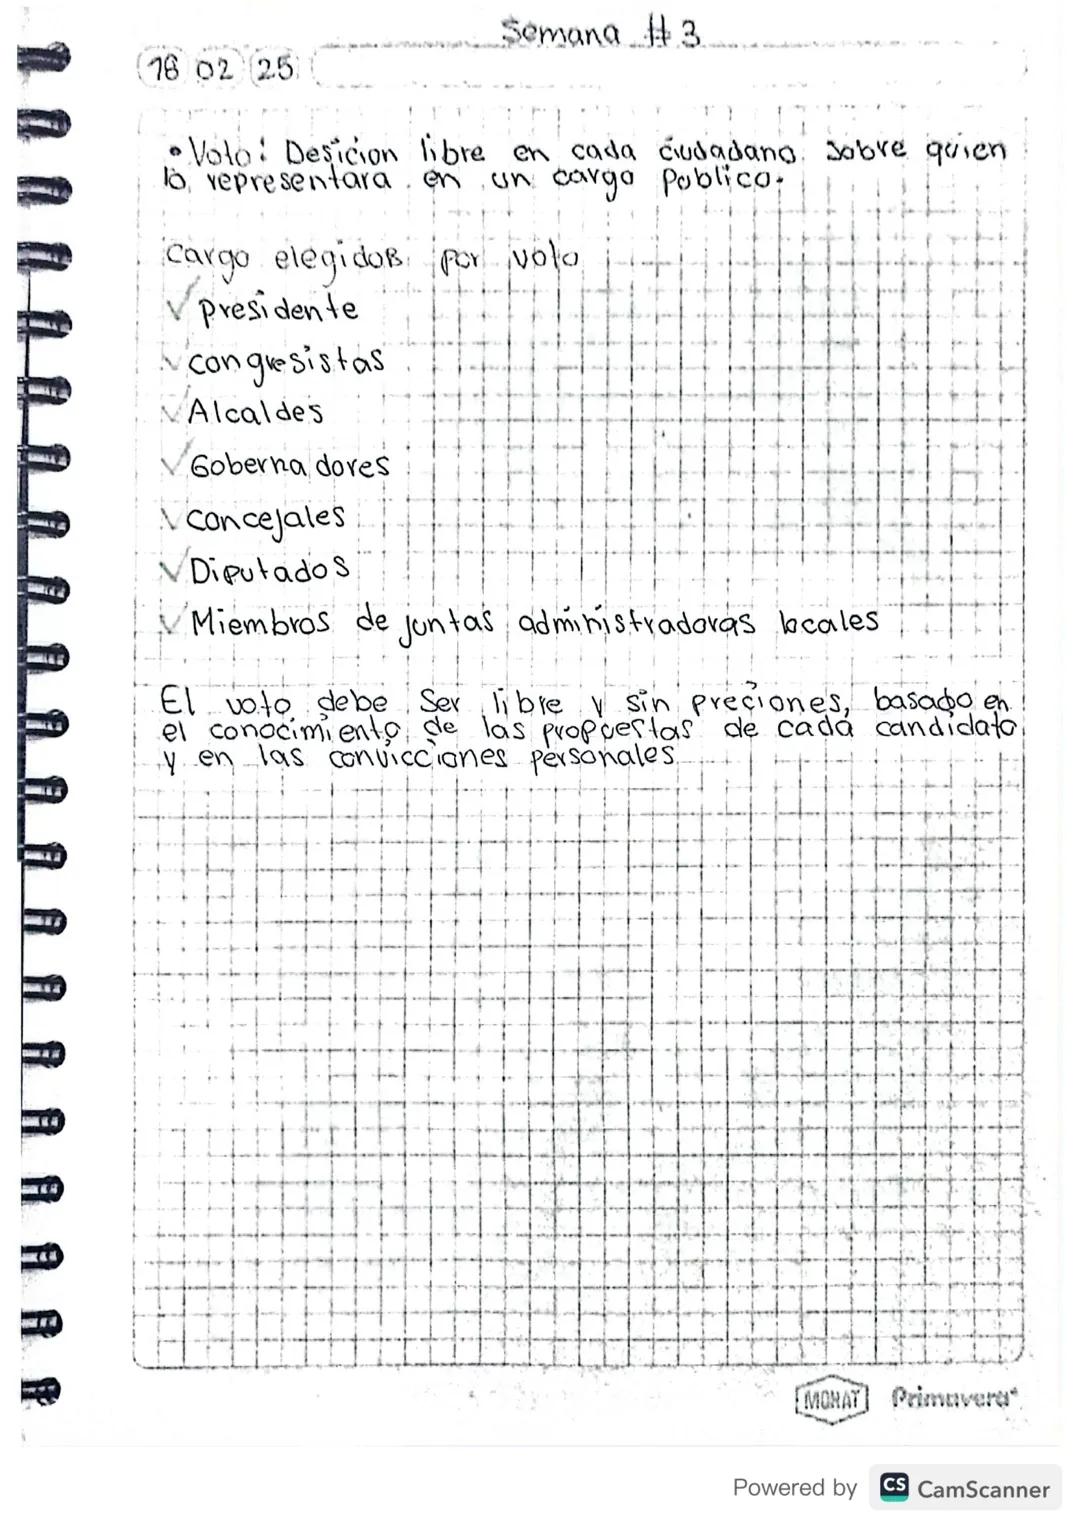 Semana #3
18 02 25
• Voto: Desicion libre en cada ciudadano sobre quien
lo representara en un cargo Publico.
Cargo elegidos por voto
✓ Presidente
✓ congresistas
✓ Alcaldes
✓ Gobernadores
✓ concejales
✓ Diputados
✓ Miembros de juntas administradoras locales
El voto debe Ser libre y sin preciones, basado en
el conocimiento de las propuestas de cada candidato
y en las convicciones personales
MONAT Primavera
Powered by CS CamScanner